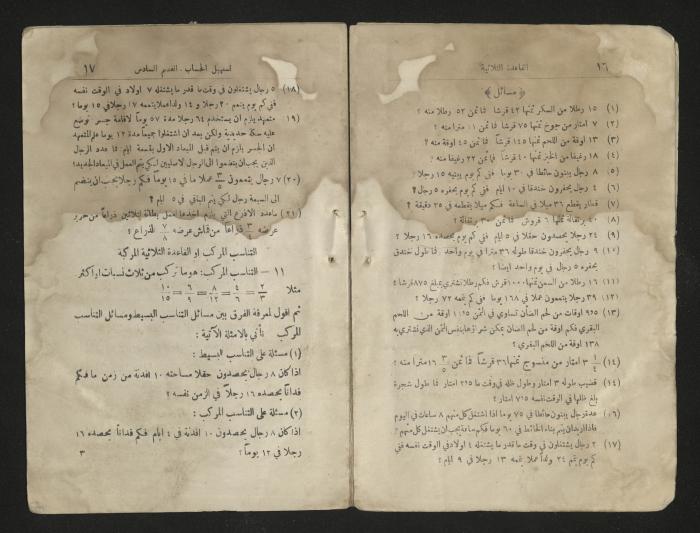 ١٦ القاعدة الثلاثية
﴿ مسائل ﴾
(١) ١٥ رطلا من السكر ثمنها ٤٢ قرشا فما ثمن ٥٢ رطلا منه ؟
(٢) ٧ امتار من جوخ ثمنها ٧٥ قرشا فما ثمن ١١ مترا منه ؟
(٣) ١٣ اوقة من اللحم ثمنها ١٤٥ قرشا فما ثمن ٤٥ اوقة منه ؟
(٤) ١٨ رغيفا من الخبز ثمنها ٤٠ قرشا فما ثمن ٢٢ رغيفا منه ؟
(٥) ٨ رجال يبنون حائطا في ٣٠ يوما ففي كم يوم يبنيه ١٥ رجلا ؟
(٦) ٤ رجال يحفرون خندقا في ١٠ ايام ففي كم يوم يحفره ٥ رجال ؟
(٧) قطار يقطع ٣٦ ميلا في الساعة فكم ميلا يقطعه في ٢٥ دقيقة ؟
(٨) ٤٠ برتقالة ثمنها ٦ قروش فما ثمن ٣٠ برتقالة ؟
(٩) ٢٤ رجلا يحصدون حقلا في ٥ ايام ففي كم يوم يحصده ١٦ رجلا ؟
(١٠) ٩ رجال يحفرون خندقا طوله ٣٦ مترا في يوم واحد فما طول خندق
يحفره ٥ رجال في يوم واحد ايضا ؟
(١١) ١٦ رطلا من السمن ثمنها ١٠٠٠ قرش فكم رطلا نشتري بمبلغ ٨٧٥ قرشا ؟
(١٢) ٣٩ رجلا يتممون عملا في ١٦٨ يوما ففي كم يوم يتممه ٧٢ رجلا ؟
(١٣) ٩٦٥ اوقات من لحم الضأن تساوي في الثمن ١١٥ اوقة من اللحم
البقري فكم اوقة من لحم الضان يمكن شراؤها بنفس الثمن الذي نشتري به
١٣٨ اوقة من اللحم البقري ؟
(١٤) ٣ ١/٤ امتار من منسوج ثمنها ٣٦ قرشا فما ثمن ١٦ ٣/٥ مترا منه ؟
(١٤) قضيب طوله ٣ امتار وطول ظله في وقت ما امتار فما طول شجرة
بلغ ظلها في الوقت نفسه امتار ؟
عدة رجال يبنون حائطا في ٧٥ يوما اذا اشتغل كل منهم ٨ ساعات في اليوم
فاذا اريد ان يتم بناء الحائط في ٦٠ يوم فكم ساعة يجب ان يشتغل كل منهم ؟
(١٧) ٢ رجال يشتغلون في وقت ما قدر ما يشتغله ٤ اولاد في الوقت نفسه ففي
كم يوم يتم ٢٤ ولدا عملا يتممه ١٣ رجلا في ٩ ايام ؟
تسهيل الحساب . القسم السادس ١٧
(١٨) ٥ رجال يشتغلون في وقت ما قدر ما يشتغله ٧ اولاد في الوقت نفسه
ففي كم يوم يتمم ٢٠ رجلا و ١٤ ولدا عملا يتممه ١٧ رجلا في ١٥ يوما ؟
(١٩ متعهد يلزم ان يستخدم ٦٤ رجلا مدة ٥٧ يوماً لاقامة جسر توضع
عليه سكة حديدية ولكن بعد ان اشتغلوا جميعاً مدة ١٢ يوما على المتعهد
ان الجسر يلزم ان يتم قبل الميعاد الاول بقسمة ايام فما عدد الرجال
الذين يجب ان ينضموا الى الرجال الاصليين لكي يتم العمل في الميعاد الجديد ؟
(٢٠) ٧ رجال يتممون ٣/٥ عملا ما في ١٥ يوما فكم رجلا يجب ان ينضم
الى السبعة رجال لكي يتم الباقي في ٥ ايام ؟
(٢١) ماعدد الاذرع التي يلزم اخذها لعمل بطانة لثلاثين ذراعا من حرير
عرضه ٣/٤ ذراعاً من قماش عرضه ٧/٨ للذراع ؟
التناسب المركب او القاعدة الثلاثية المركبة
١١ – التناسب المركب : هو ما تركب من ثلاث نسبات او اكثر
مثلا ٢/٣ = ٤/٦ = ٨/١٢ = ٦/٩ = ١٠/١٥
ثم اقول لمعرفة الفرق بين مسائل التناسب البسيط ومسائل التناسب
المركب نأتي بالامثلة الآتية :
(١) مسئلة على التناسب البسيط :
اذا كان ٨ رجال يحصدون حقلا مساحته ١٠ افدنة من زمن ما فكم
فدانا يحصده ١٦ رجلاً في الزمن نفسه ؟
(٢) مسئلة على التناسب المركب :
اذا كان ٨ رجال يحصدون ١٠ افدنة في ٤ ايام فكم فداناً يحصده ١٦
رجلا في ١٢ يوماً ؟
٣